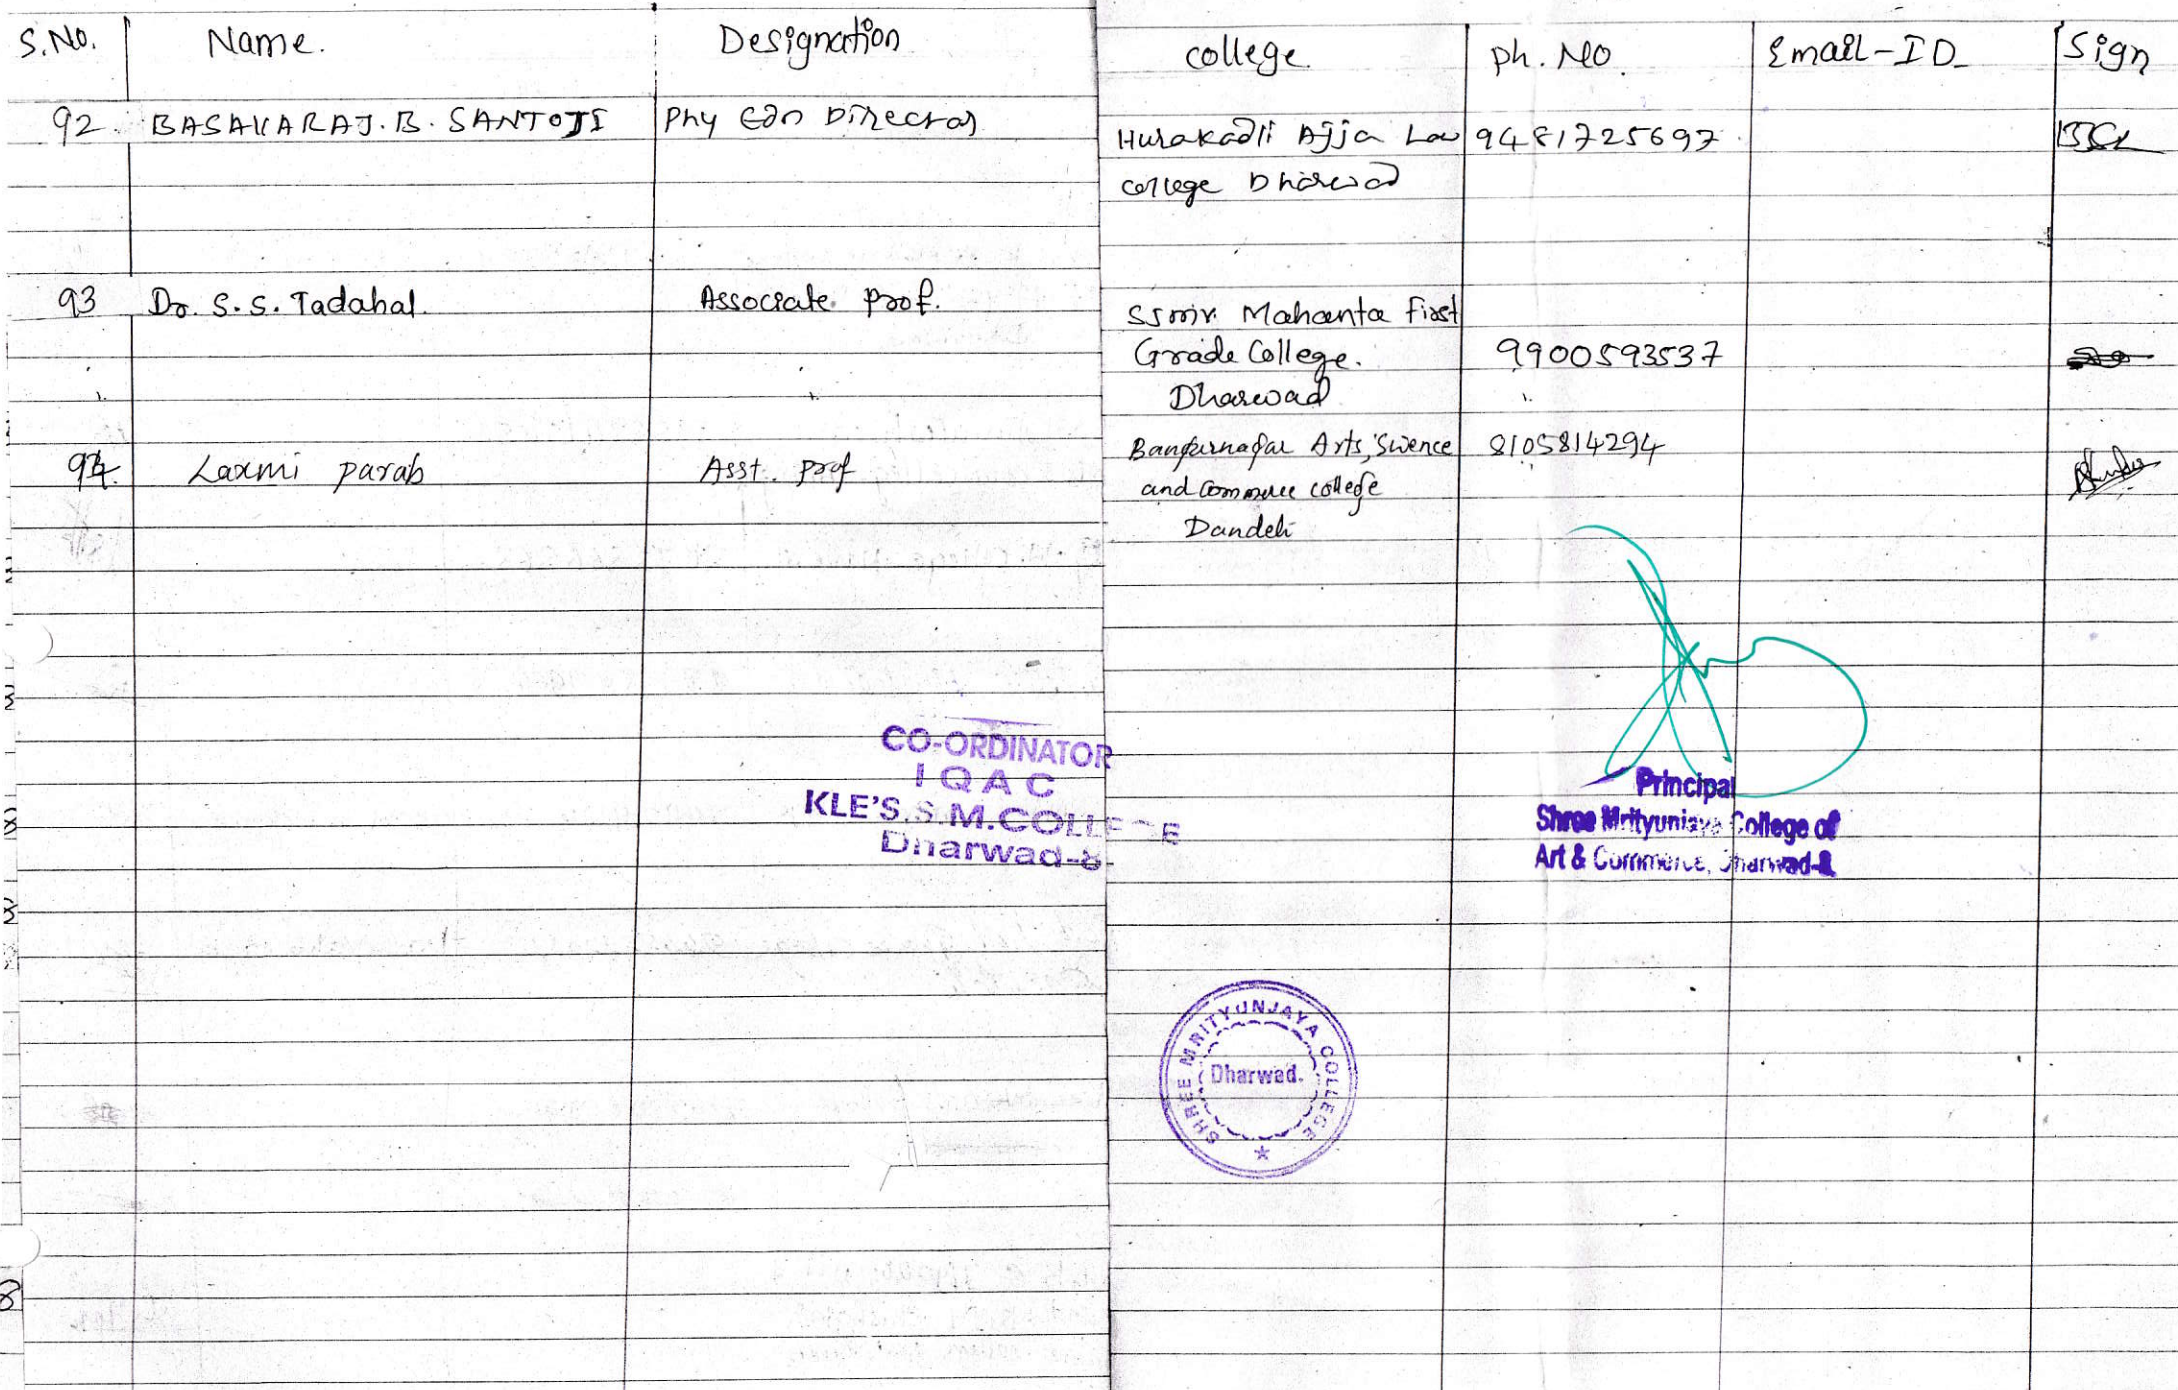 S.No. Name. Designation college. Ph. No. Email-ID Sign
92. BASAVARAJ. B. SANTOJI Phy Edn Director Hurakadli Ajja Law 9481725697
college Dharwad
93 Dr. S. S. Tadahal. Associate Prof. Mahanta First
Grade College. 9900593537
Dharwad
94. Laxmi parab Asst. prof Bangurnagar Arts, Science 8105814294
and Commerce college
Dandeli
CO-ORDINATOR
IQAC
KLE'S. S.M.COLLEGE
Dharwad-8.
Principal
Shree Mrityunjaya College of
Art & Commerce, Dharwad-8
SHREE MRITYUNJAYA COLLEGE
Dharwad.